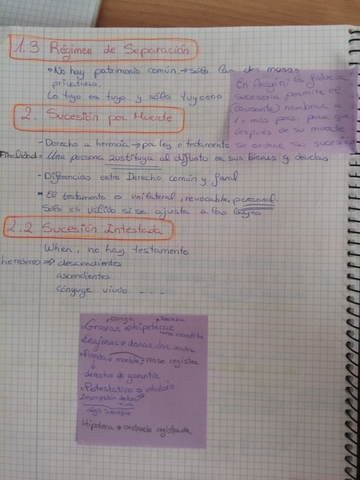 1.3 Régimen de Separación
• No hay patrimonio común → solo hay dos masas
privativas.
Lo tuyo es tuyo y sólo tuyo
2. Sucesión por Muerte
- Derecho a herencia → pa ley o testamento
Finalidad = Una persona sustituya al difunto en sus bienes y deudas
- Diferencias entre Derecho común y foral
• El testamento es unilateral, revocable, personal.
Solo es válido si se ajusta a las leyes
2.2 Sucesión Intestada
When, no hay testamento
herederos → descendientes
ascendientes
Cónyuge viudo ....
En Aragón: la fiducia
sucesoria permite al
(causante) nombrar a
1 o más para que
después de su muerte
se ordene su sucesión
Gravosas → hipotecas
• Prenda → mueble → no se registra
derecho → garantía
• Potestativo →
Hipoteca → contrario registrada